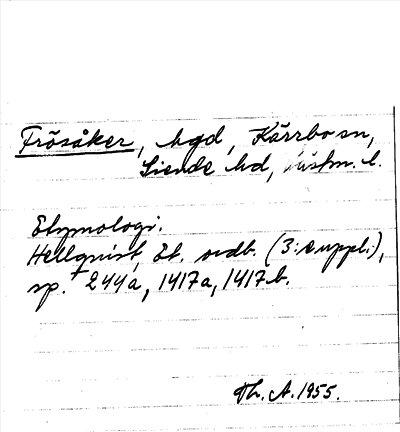 Frösåker, hgd, Kärrbo sn,
Siende hd, Västm. l.
Etymologi.
Hellquist, Et. ordb. (3:e uppl.),
sp. 244a, 1417a, 1417b.
Th. A. 1955.